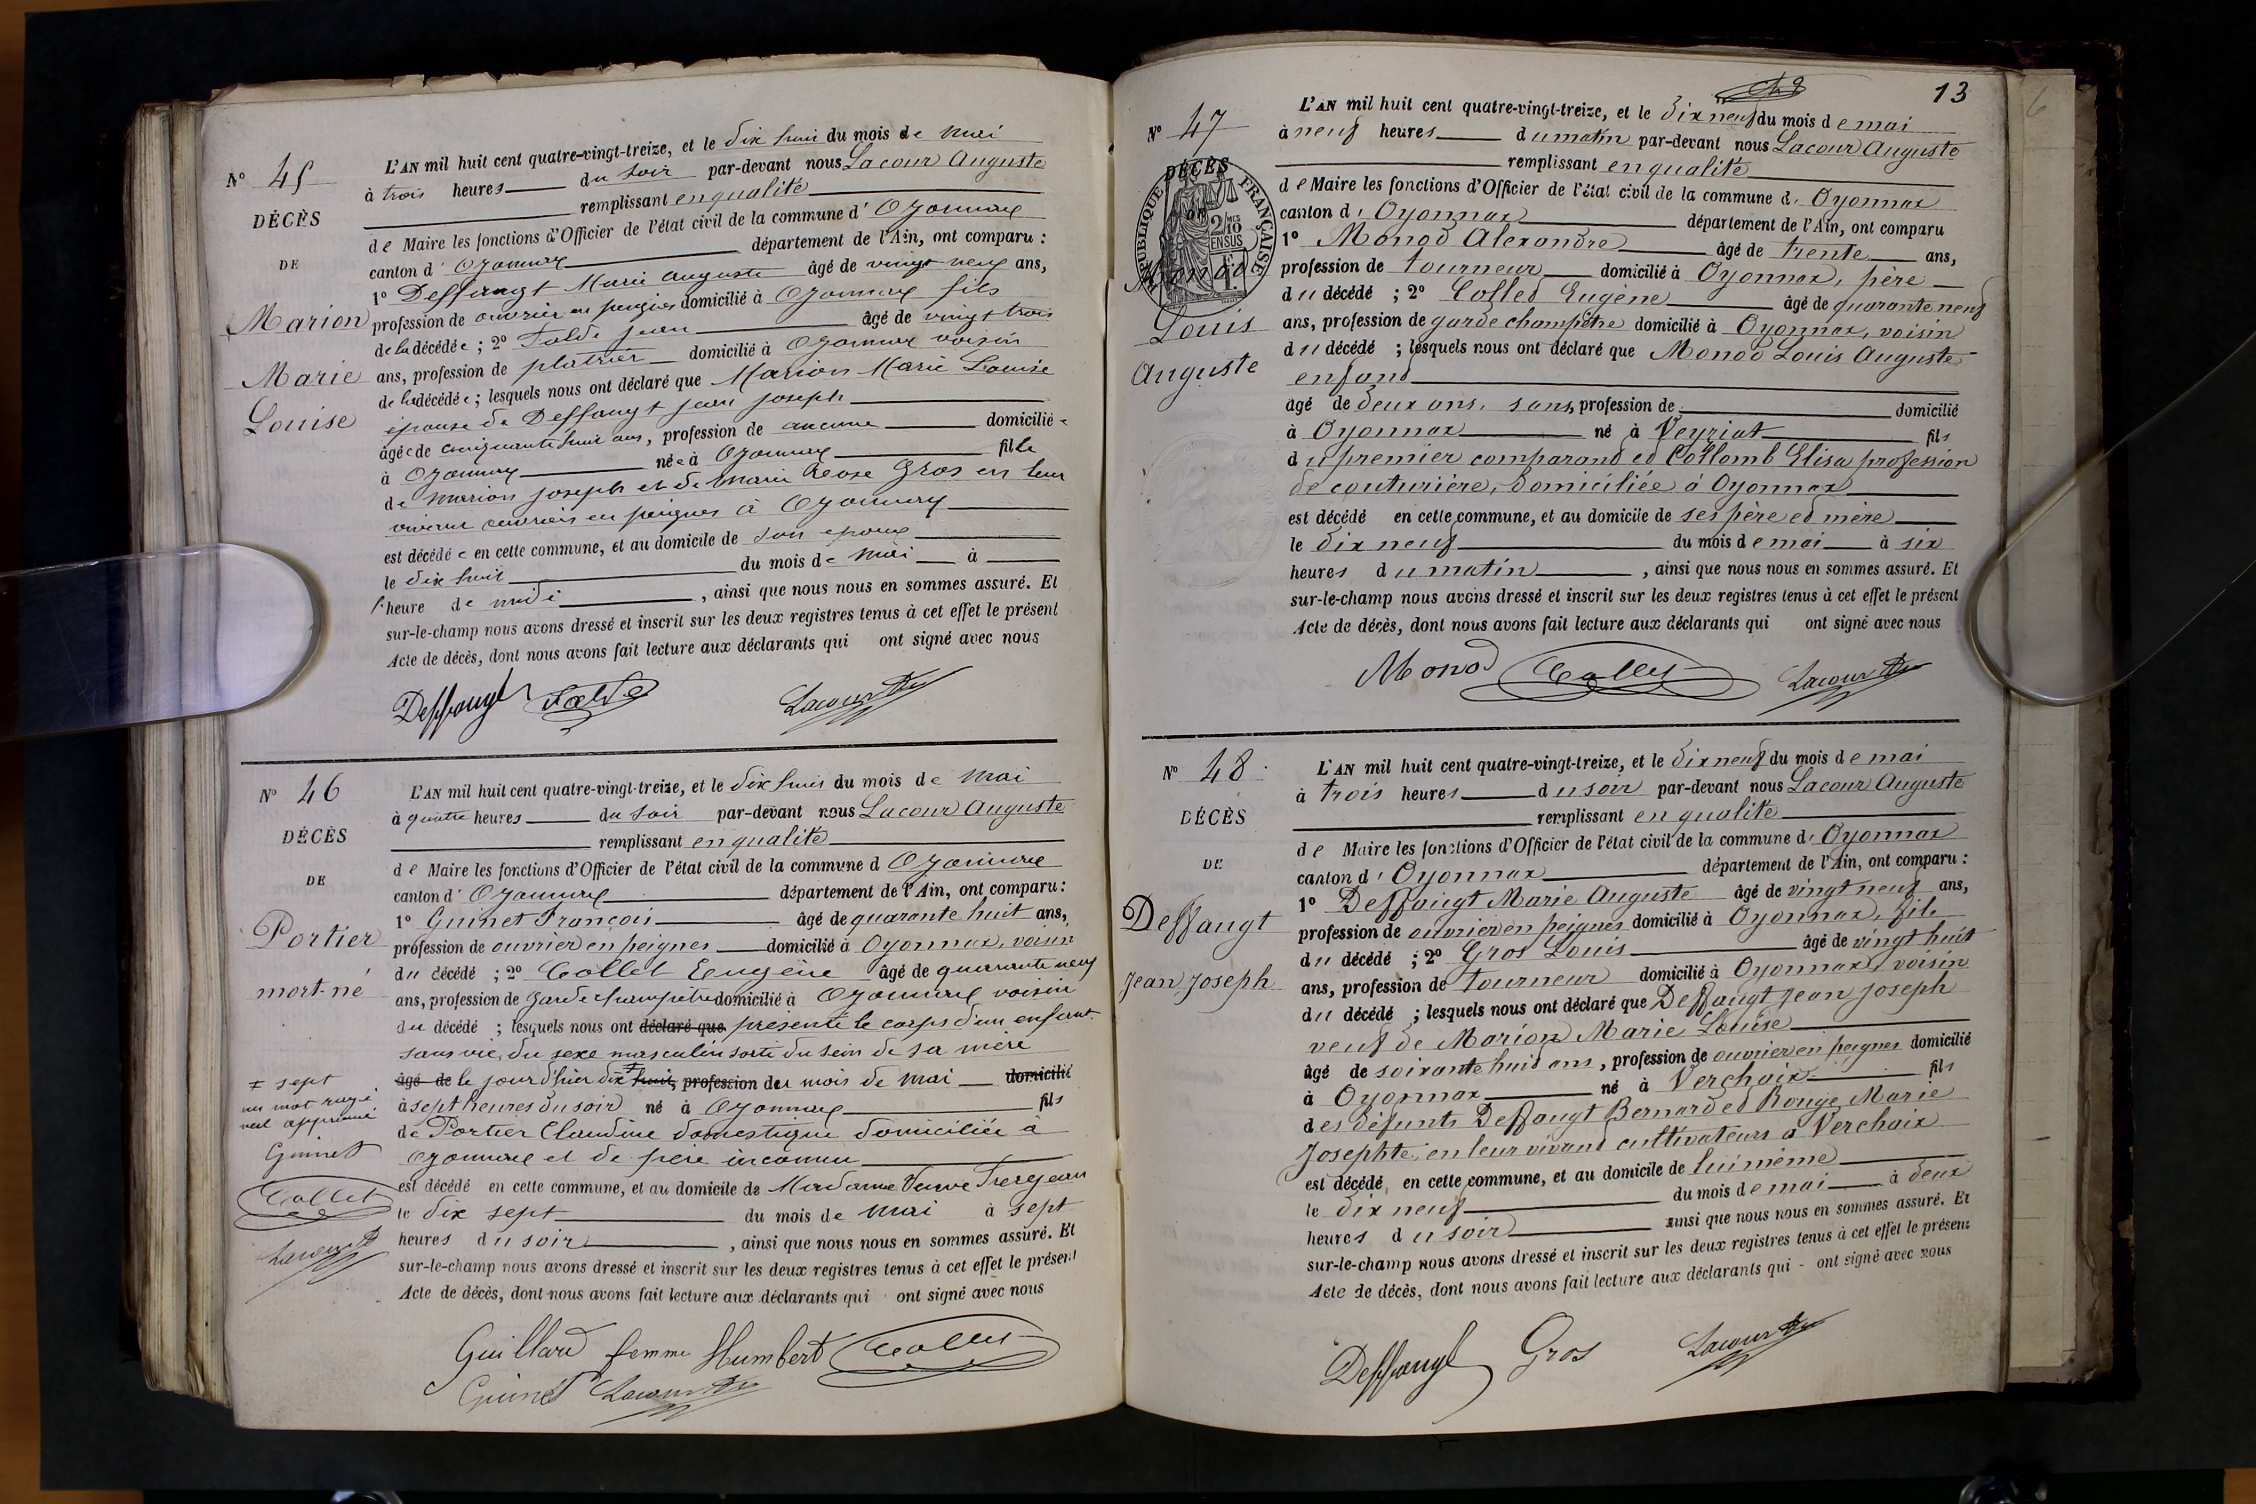 N° 45
DÉCÈS
DE
Marion
Marie
Louise
L'AN mil huit cent quatre-vingt-treize, et le dix huit du mois de mai
à trois heures du soir par-devant nous Lacour Auguste
remplissant en qualité
de Maire les fonctions d'Officier de l'état civil de la commune d' Oyonnax
canton d' Oyonnax département de l'Ain, ont comparu :
1° Deffaugt Marie Auguste âgé de vingt neuf ans,
profession de ouvrier en peignes domicilié à Oyonnax fils
de la décédée ; 2° Jean âgé de vingt trois
ans, profession de platrier domicilié à Oyonnax voisin
de la décédée ; lesquels nous ont déclaré que Marion Marie Louise
épouse de Deffaugt Jean Joseph
âgée de cinquante huit ans, profession de aucune domiciliée
à Oyonnax née à Oyonnax fille
de Marion Joseph et de Marie Gros en leur
vivant ouvriers en peignes à Oyonnax
est décédée en cette commune, et au domicile de son époux
le dix huit du mois de mai à
l'heure de midi , ainsi que nous nous en sommes assuré. Et
sur-le-champ nous avons dressé et inscrit sur les deux registres tenus à cet effet le présent
Acte de décès, dont nous avons fait lecture aux déclarants qui ont signé avec nous
Deffaugt Lacour
N° 46
DÉCÈS
DE
Portier
mort-né
L'AN mil huit cent quatre-vingt-treize, et le dix huit du mois de mai
à quatre heures du soir par-devant nous Lacour Auguste
remplissant en qualité
de Maire les fonctions d'Officier de l'état civil de la commune d Oyonnax
canton d' Oyonnax département de l'Ain, ont comparu :
1° Guinet François âgé de quarante huit ans,
profession de ouvrier en peignes domicilié à Oyonnax, voisin
du décédé ; 2° Collet Eugène âgé de quarante neuf
ans, profession de garde champêtre domicilié à Oyonnax voisin
du décédé ; lesquels nous ont déclaré que présenté le corps d'un enfant
sans vie, du sexe masculin sorti du sein de sa mère
âgé de le jour d'hier dix ‡ huit, profession du mois de mai domicilié
à sept heures du soir né à Oyonnax fils
de Portier Claudine domestique domiciliée à
Oyonnax et de père inconnu
est décédé en cette commune, et au domicile de Madame Veuve
le dix sept du mois de mai à sept
heures du soir , ainsi que nous nous en sommes assuré. Et
sur-le-champ nous avons dressé et inscrit sur les deux registres tenus à cet effet le présent
Acte de décès, dont nous avons fait lecture aux déclarants qui ont signé avec nous
‡ sept
un mot rayé
nul approuvé
Guinet
Collet
Lacour
Guillard femme Humbert Collet
Guinet Lacour
13
6
N° 47
DÉCÈS
DE
RÉPUBLIQUE FRANÇAISE
2/10 EN SUS
Monod
Louis
Auguste
L'AN mil huit cent quatre-vingt-treize, et le dix neuf du mois de mai
à neuf heures du matin par-devant nous Lacour Auguste
remplissant en qualité
de Maire les fonctions d'Officier de l'état civil de la commune d' Oyonnax
canton d' Oyonnax département de l'Ain, ont comparu
1° Monod Alexandre âgé de trente ans,
profession de tourneur domicilié à Oyonnax, père
du décédé ; 2° Collet Eugène âgé de quarante neuf
ans, profession de garde champêtre domicilié à Oyonnax, voisin
du décédé ; lesquels nous ont déclaré que Monod Louis Auguste
enfant
âgé de deux ans, sans profession de domicilié
à Oyonnax né à Veyziat fils
du premier comparant et Collomb Elisa profession
de couturière, domiciliée à Oyonnax
est décédé en cette commune, et au domicile de ses père et mère
le dix neuf du mois de mai à six
heures du matin , ainsi que nous nous en sommes assuré. Et
sur-le-champ nous avons dressé et inscrit sur les deux registres tenus à cet effet le présent
Acte de décès, dont nous avons fait lecture aux déclarants qui ont signé avec nous
Monod Collet Lacour
N° 48
DÉCÈS
DE
Deffaugt
Jean Joseph
L'AN mil huit cent quatre-vingt-treize, et le dix neuf du mois de mai
à trois heures du soir par-devant nous Lacour Auguste
remplissant en qualité
de Maire les fonctions d'Officier de l'état civil de la commune d' Oyonnax
canton d' Oyonnax département de l'Ain, ont comparu :
1° Deffaugt Marie Auguste âgé de vingt neuf ans,
profession de ouvrier en peignes domicilié à Oyonnax, fils
du décédé ; 2° Gros Louis âgé de vingt huit
ans, profession de tourneur domicilié à Oyonnax, voisin
du décédé ; lesquels nous ont déclaré que Deffaugt Jean Joseph
veuf de Marion Marie Louise
âgé de soixante huit ans, profession de ouvrier en peignes domicilié
à Oyonnax né à Verchaix fils
des défunts Deffaugt Bernard et Rouge Marie
Josephte, en leur vivant cultivateurs à Verchaix
est décédé, en cette commune, et au domicile de lui même
le dix neuf du mois de mai à deux
heures du soir ainsi que nous nous en sommes assuré. Et
sur-le-champ nous avons dressé et inscrit sur les deux registres tenus à cet effet le présent
Acte de décès, dont nous avons fait lecture aux déclarants qui - ont signé avec nous
Deffaugt Gros Lacour